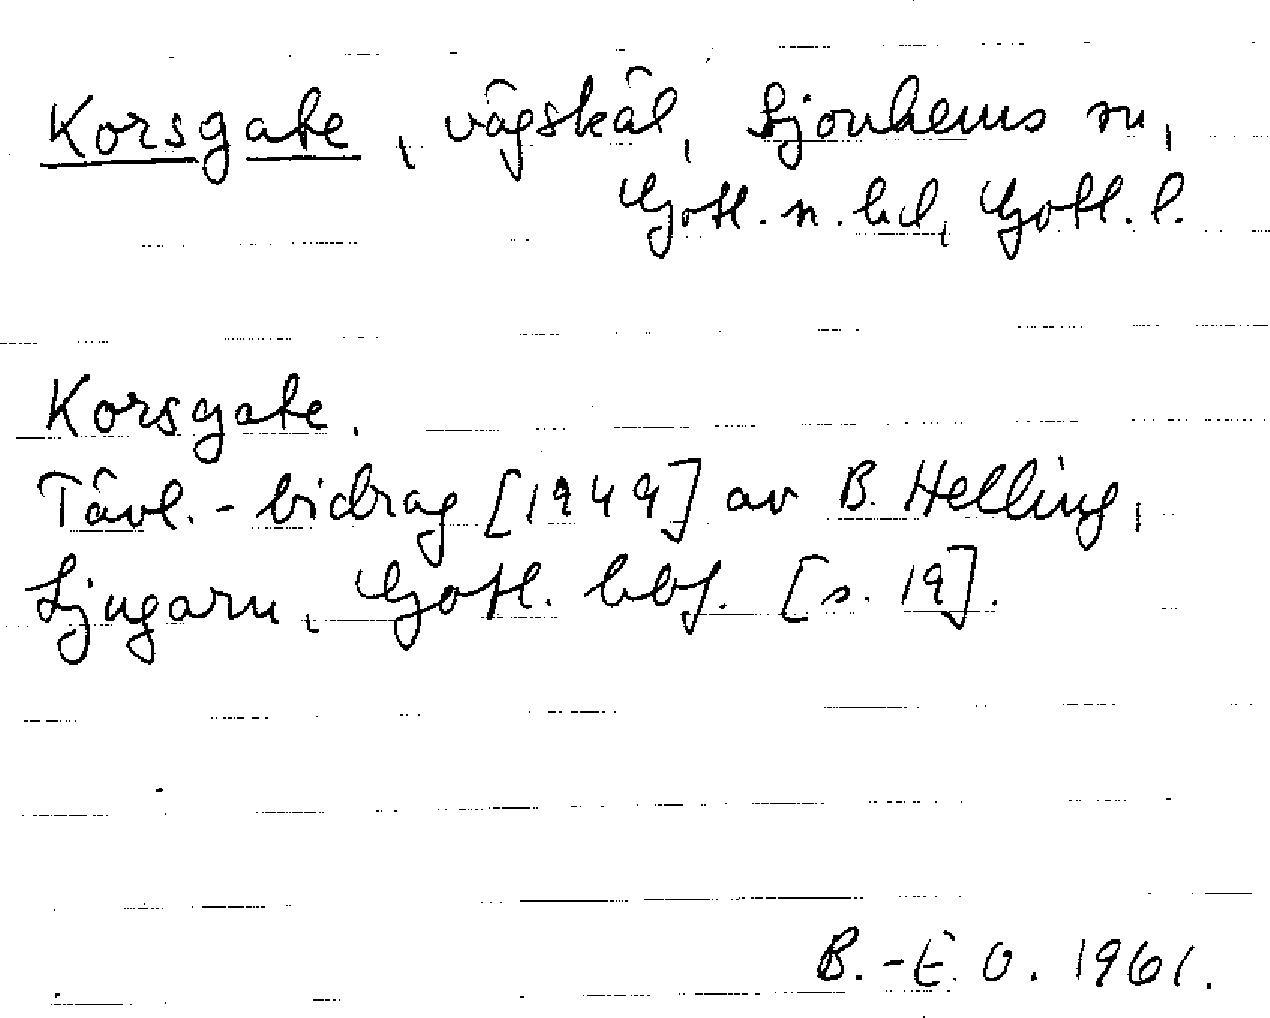 Korsgate, vägskäl, Sjonhems sn,
Gotl. n. hd, Gotl. l.
Korsgate.
Tävl.-bidrag [1949] av B. Helling,
Ljugarn, Gotl. hbf. [s. 19].
B.-E. O. 1961.